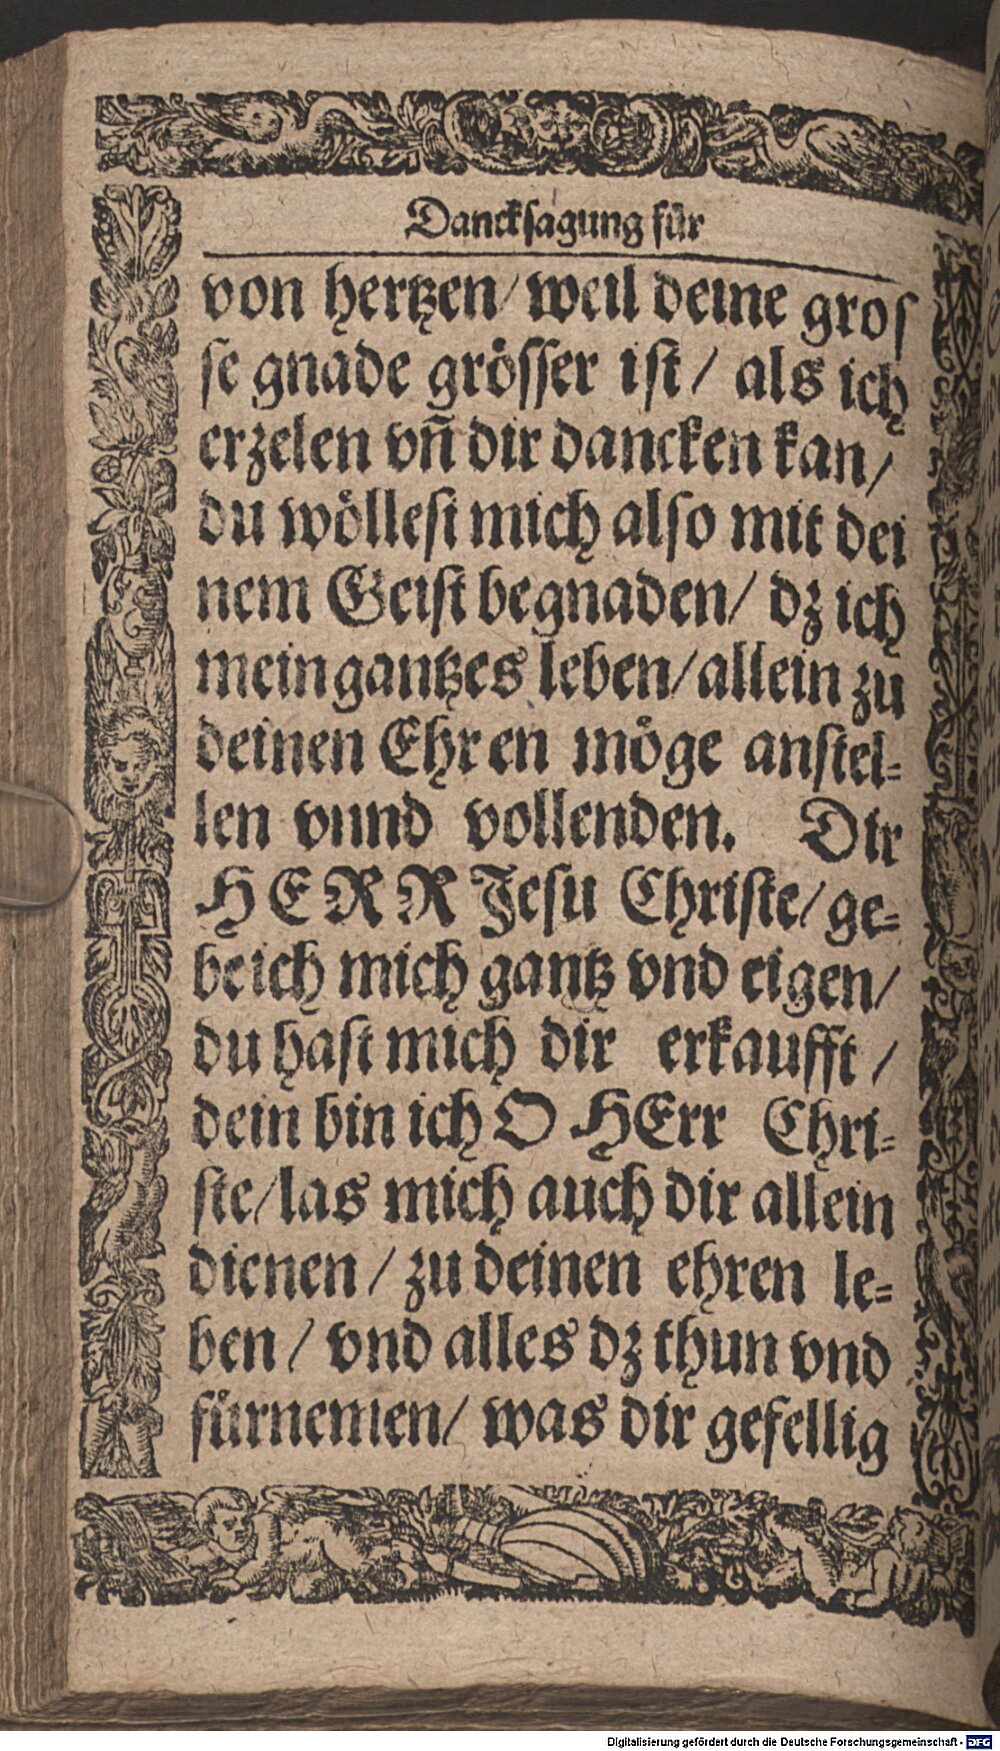 Dancksagung für
von hertzen/ weil deine gros
se gnade grösser ist/ als ich
erzelen vñ dir dancken kan/
du wöllest mich also mit dei
nem Geist begnaden/ dz ich
mein gantzes leben/ allein zu
deinen Ehren möge anstel-
len vnnd vollenden. Dir
HERR Jesu Christe/ ge-
be ich mich gantz vnd eigen/
du hast mich dir erkaufft/
dein bin ich O HErr Chri-
ste/ las mich auch dir allein
dienen/ zu deinen ehren le-
ben/ vnd alles dz thun vnd
fürnemen/ was dir gefellig
Digitalisierung gefördert durch die Deutsche Forschungsgemeinschaft - DFG